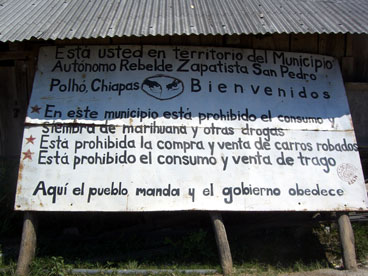 Está usted en territorio del Municipio
Autónomo Rebelde Zapatista San Pedro
Polhó, Chiapas Bienvenidos
En este municipio está prohibido el consumo y
siembra de marihuana y otras drogas
Está prohibida la compra y venta de carros robados
Está prohibido el consumo y venta de trago
Aquí el pueblo, manda y el gobierno obedece